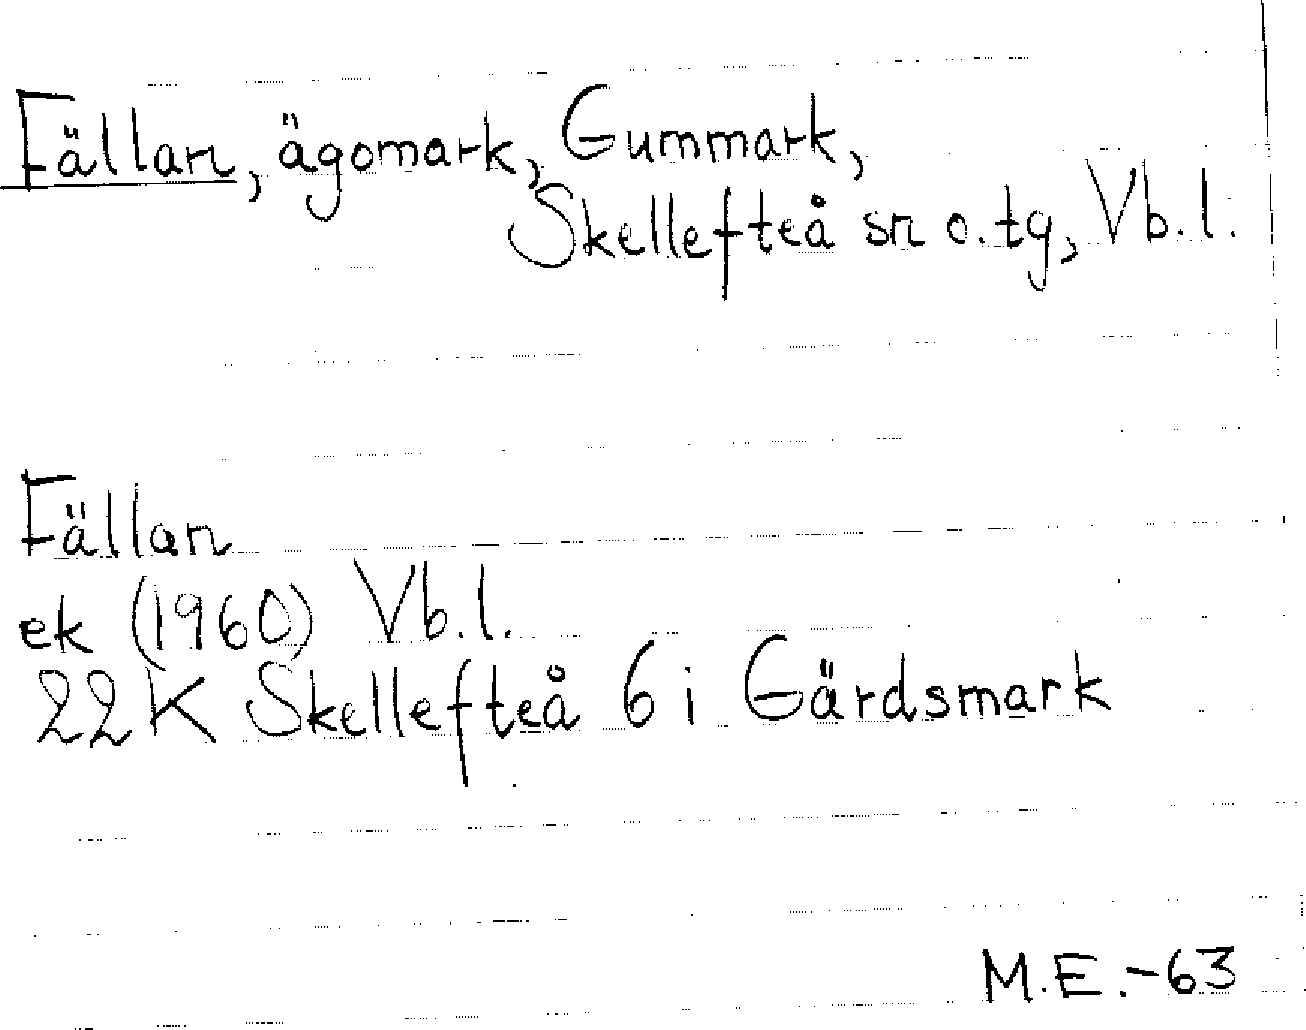 Fällan, ägomark, Gummark,
Skellefteå sn o. tg, Vb. l.
Fällan
ek (1960) Vb. l.
22 K Skellefteå 6 i Gärdsmark
M.E.-63